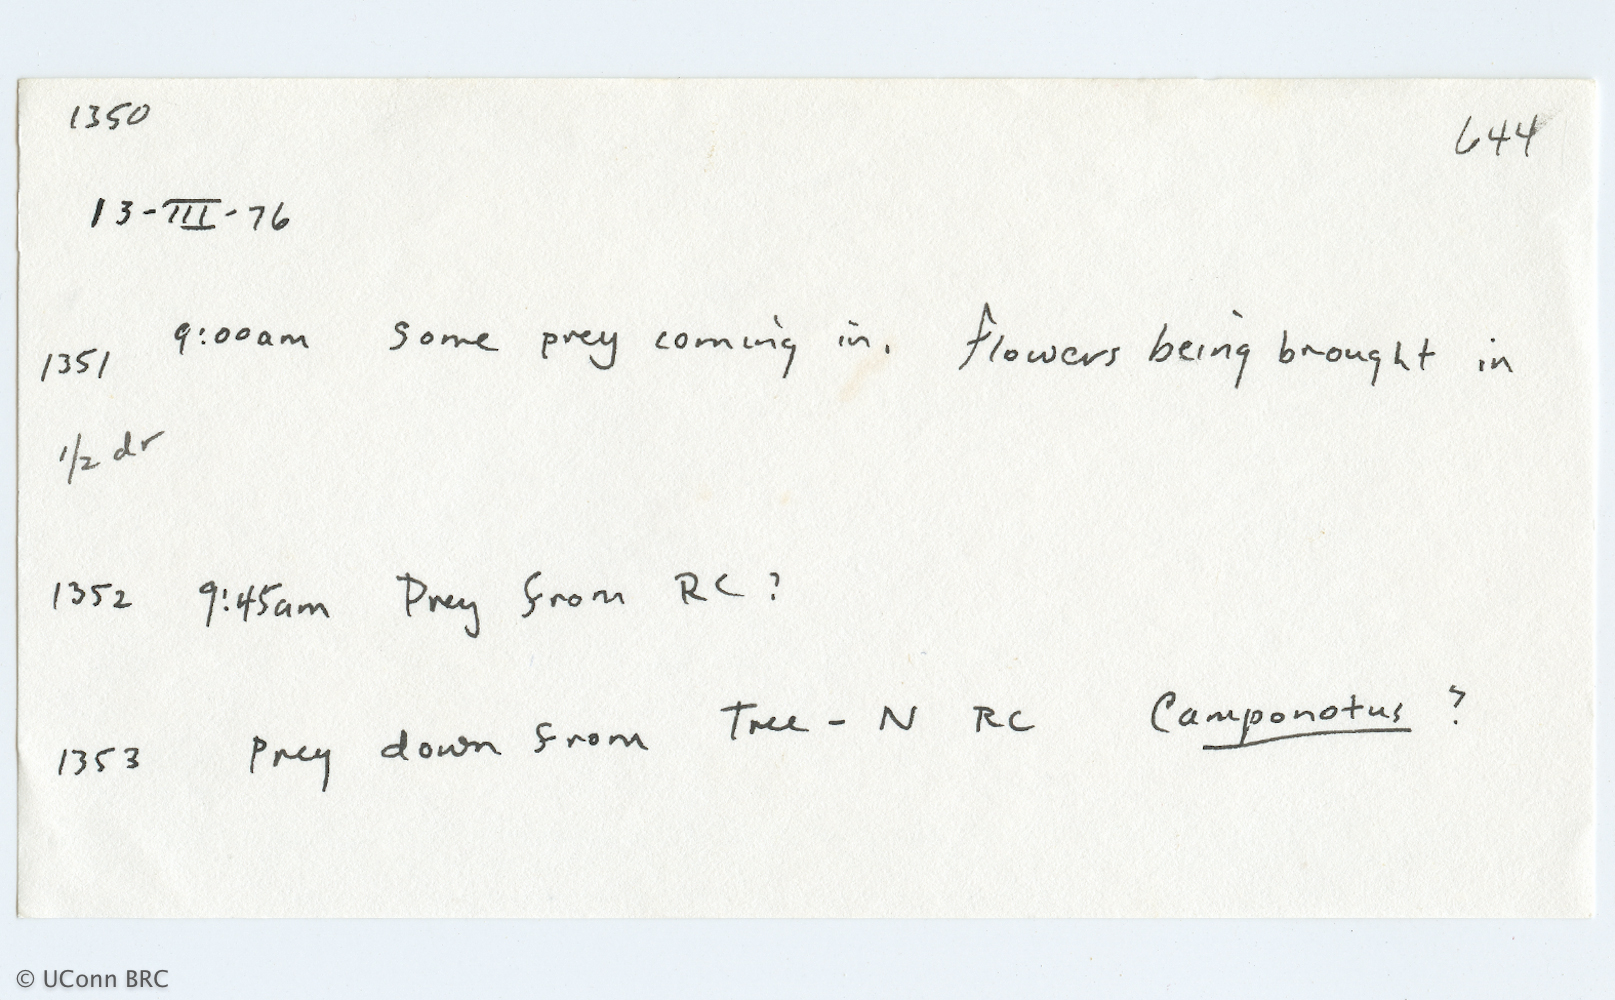 1350
644
13-III-76
1351 9:00am Some prey coming in. Flowers being brought in
1/2 dr
1352 9:45am Prey from RC?
1353 Prey down from Tree - N RC Camponotus ?
© UConn BRC